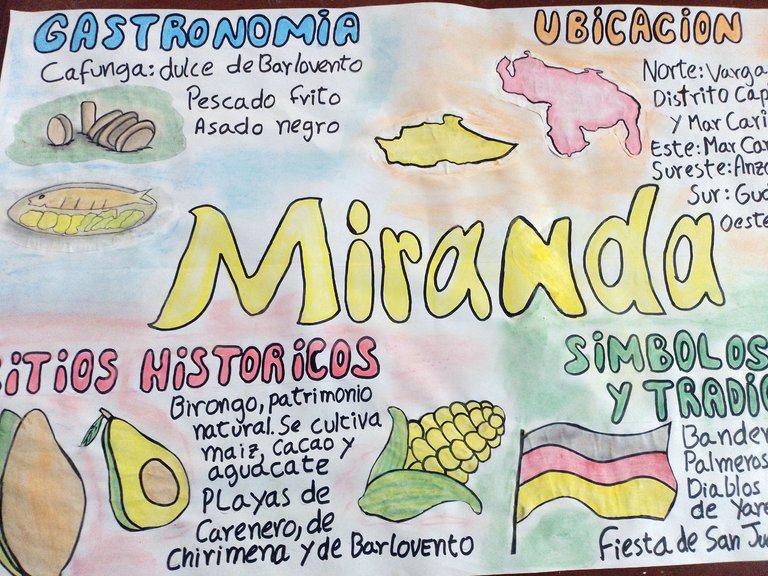 GASTRONOMIA
Cafunga: dulce de Barlovento
Pescado frito
Asado negro
UBICACION
Norte: Varga
Distrito Cap
y Mar Cari
Este: Mar Car
Sureste: Anzo
Sur: Guá
oeste
Miranda
SITIOS HISTORICOS
Birongo, patrimonio
natural. Se cultiva
maiz, cacao y
aguacate
PLayas de
Carenero, de
Chirimena y de Barlovento
SIMBOLOS
Y TRADIC
Bander
Palmeros
Diablos
de Yare
Fiesta de San Ju